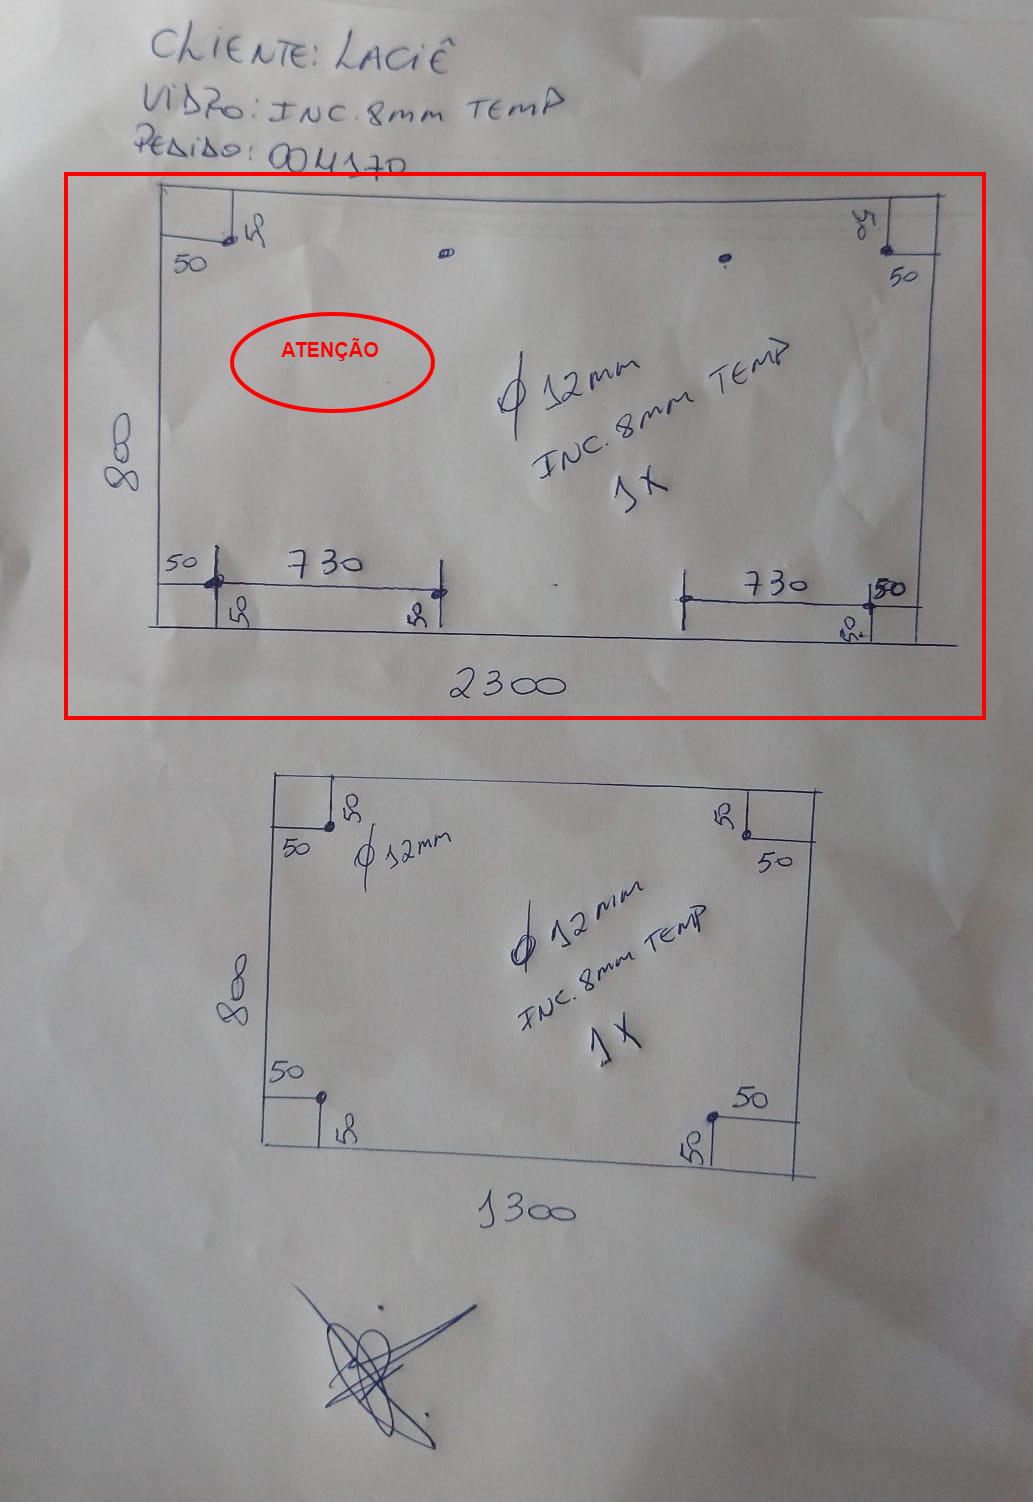 CLIENTE: LACIÊ
VIDRO: INC. 8mm TEMP
PEDIDO: 004170
50
50
50
50
ATENÇÃO
φ 12mm
INC. 8mm TEMP
1X
800
50
730
730
50
50
50
50
2300
50
50
φ 12mm
50
50
φ 12mm
INC. 8mm TEMP
1X
800
50
50
50
50
1300